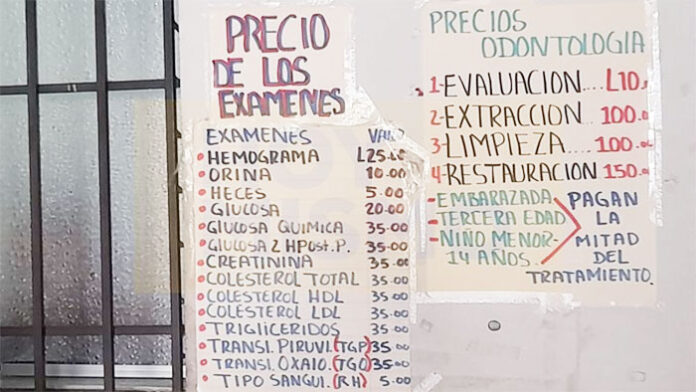 PRECIO
DE LOS
EXAMENES
EXAMENES VALOR
HEMOGRAMA L25.00
ORINA 10.00
HECES 5.00
GLUCOSA 20.00
GLUCOSA QUIMICA 35.00
GLUCOSA 2 HPost.P. 35.00
CREATININA 35.00
COLESTEROL TOTAL 35.00
COLESTEROL HDL 35.00
COLESTEROL LDL 35.00
TRIGLICERIDOS 35.00
TRANSI. PIRUVI. (TGP) 35.00
TRANSI. OXALO. (TGO) 35.00
TIPO SANGUI. (RH) 5.00
PRECIOS
ODONTOLOGIA
1-EVALUACION.... L10.
2-EXTRACCION... 100.00
3-LIMPIEZA.... 100.00
4-RESTAURACION 150.00
-EMBARAZADA
-TERCERA EDAD
-NIÑO MENOR-
14 AÑOS..
PAGAN
LA
MITAD
DEL
TRATAMIENTO.